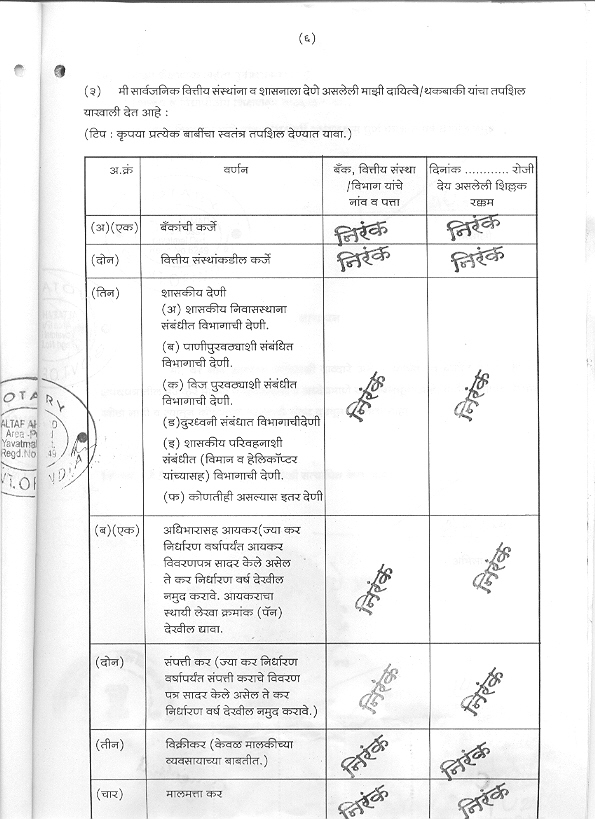 (६)
(३) मी सार्वजनिक वित्तीय संस्थांना व शासनाला देणे असलेली माझी दायित्वे/थकबाकी यांचा तपशिल
याखाली देत आहे :
(टिप : कृपया प्रत्येक बाबींचा स्वतंत्र तपशिल देण्यात यावा.)
अ.क्रं वर्णन बँक, वित्तीय संस्था दिनांक ............ रोजी
/विभाग यांचे देय असलेली शिल्लक
नांव व पत्ता रक्कम
(अ)(एक) बँकांची कर्जे निरंक निरंक
(दोन) वित्तीय संस्थांकडील कर्जे निरंक निरंक
(तिन) शासकीय देणी
(अ) शासकीय निवासस्थाना
संबंधीत विभागाची देणी.
(ब) पाणीपुरवठ्याशी संबंधित
विभागाची देणी.
(क) विज पुरवठ्याशी संबंधीत
विभागाची देणी. निरंक निरंक
(ड)दुरध्वनी संबंधात विभागाचीदेणी
(इ) शासकीय परिवहनाशी
संबंधीत (विमान व हेलिकॉप्टर
यांच्यासह) विभागाची देणी.
(फ) कोणतीही असल्यास इतर देणी
OTARY
ALTAF AH
Area
Yavatma
Regd.No
VT.OF INDIA
(ब)(एक) अधिभारासह आयकर(ज्या कर
निर्धारण वर्षापर्यंत आयकर
विवरणपत्र सादर केले असेल
ते कर निर्धारण वर्ष देखील
नमुद करावे. आयकराचा निरंक निरंक
स्थायी लेखा क्रमांक (पॅन)
देखील द्यावा.
(दोन) संपत्ती कर (ज्या कर निर्धारण
वर्षापर्यंत संपत्ती कराचे विवरण
पत्र सादर केले असेल ते कर निरंक निरंक
निर्धारण वर्ष देखील नमुद करावे.)
(तीन) विक्रीकर (केवळ मालकीच्या निरंक निरंक
व्यवसायाच्या बाबतीत.)
(चार) मालमत्ता कर निरंक निरंक